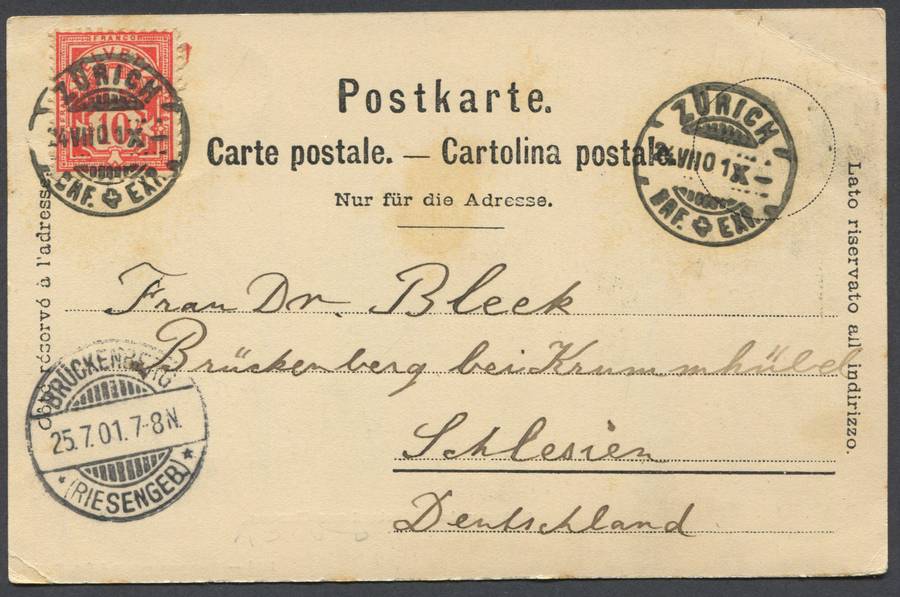 FRANCO
HELVETIA
10
ZÜRICH
24.VII.01.X-
BHF. EXP.
Postkarte.
Carte postale. — Cartolina postale.
Nur für die Adresse.
ZÜRICH
24.VII.01.X-
BHF. EXP.
Côté réservé à l'adresse.
Lato riservato all indirizzo.
Frau Dr. Bleck
Brückenberg bei Krummhübel
Schlesien
Deutschland
BRÜCKENBERG
25.7.01.7-8N.
* (RIESENGEB.) *